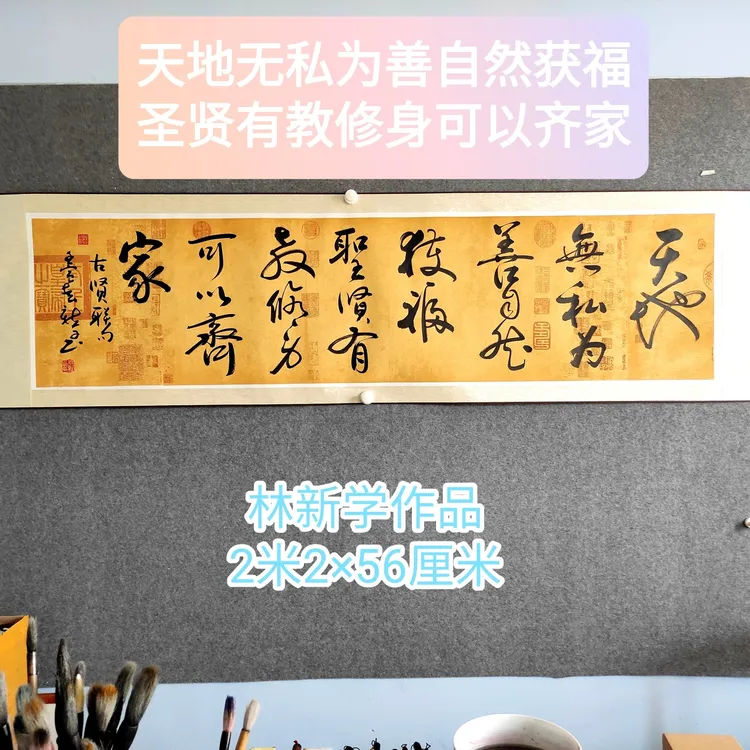 天地无私为善自然获福
圣贤有教修身可以齐家
天地
無私为
善自然
獲福
聖賢有
教修身
可以齊
家
古贤联句
林新学作品
2米2×56厘米